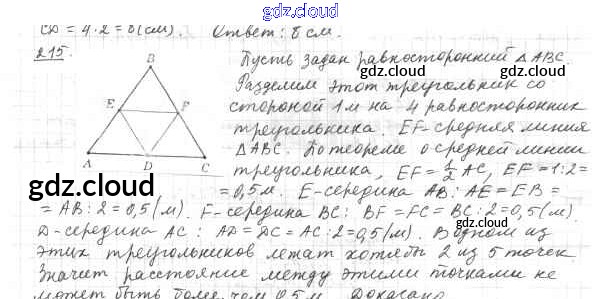 CD = 4·2 = 8 (см). Ответ: 8 см.
gdz.cloud
215.
Пусть задан равносторонний △ABC.
gdz.cloud gdz.cloud
Разделим этот треугольник со
стороной 1м на 4 равносторонних
треугольника. EF - средняя линия
△ABC. По теореме о средней линии
треугольника, EF = 1/2 AC, EF = 1:2 =
= 0,5 м. E - середина AB: AE = EB =
B
E F
A D C
gdz.cloud
gdz.cloud
= AB : 2 = 0,5 (м). F - середина BC: BF = FC = BC : 2 = 0,5 (м).
D - середина AC: AD = DC = AC : 2 = 0,5 (м). В одном из
gdz.cloud
этих треугольников лежат хотя бы 2 из 5 точек
Значит расстояние между этими точками не
может быть более чем 0,5 м. Доказано.